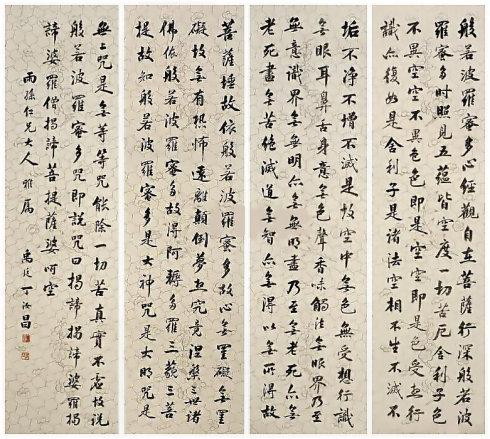 般若波羅蜜多心經觀自在菩薩行深般若波
羅蜜多時照見五蘊皆空度一切苦厄舍利子色
不異空空不異色色即是空空即是色受想行
識亦復如是舍利子是諸法空相不生不滅不
垢不淨不增不減是故空中無色無受想行識
無眼耳鼻舌身意無色聲香味觸法無眼界乃至
無意識界無無明亦無無明盡乃至無老死亦無
老死盡無苦集滅道無智亦無得以無所得故
菩薩埵故依般若波羅蜜多故心無罣礙無罣
礙故無有恐怖遠離顛倒夢想究竟涅槃三世諸
佛依般若波羅蜜多故得阿耨多羅三藐三菩
提故知般若波羅蜜多是大神咒是大明咒是
無上咒是無等等咒能除一切苦真實不虛故說
般若波羅蜜多咒即說咒曰揭諦揭諦婆羅揭
諦婆羅僧揭諦菩提薩婆呵
雨孫仁兄大人雅屬
禹廷丁汝昌